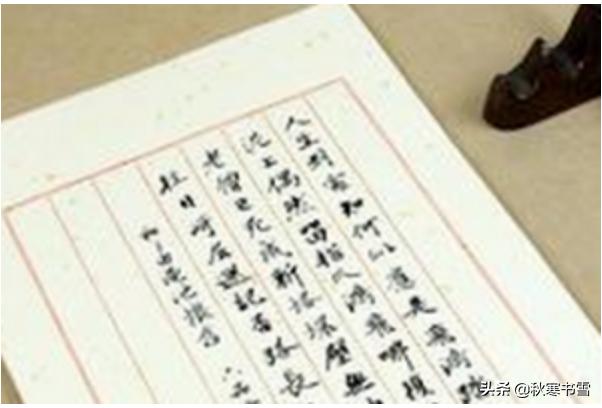 人生到處知何似應是飛鴻踏
泥上偶然留指爪鴻飛哪復
老僧已死成新塔壞壁無
往日崎嶇還記否路長
和子由澠池懷舊
头条 @秋寒书雪